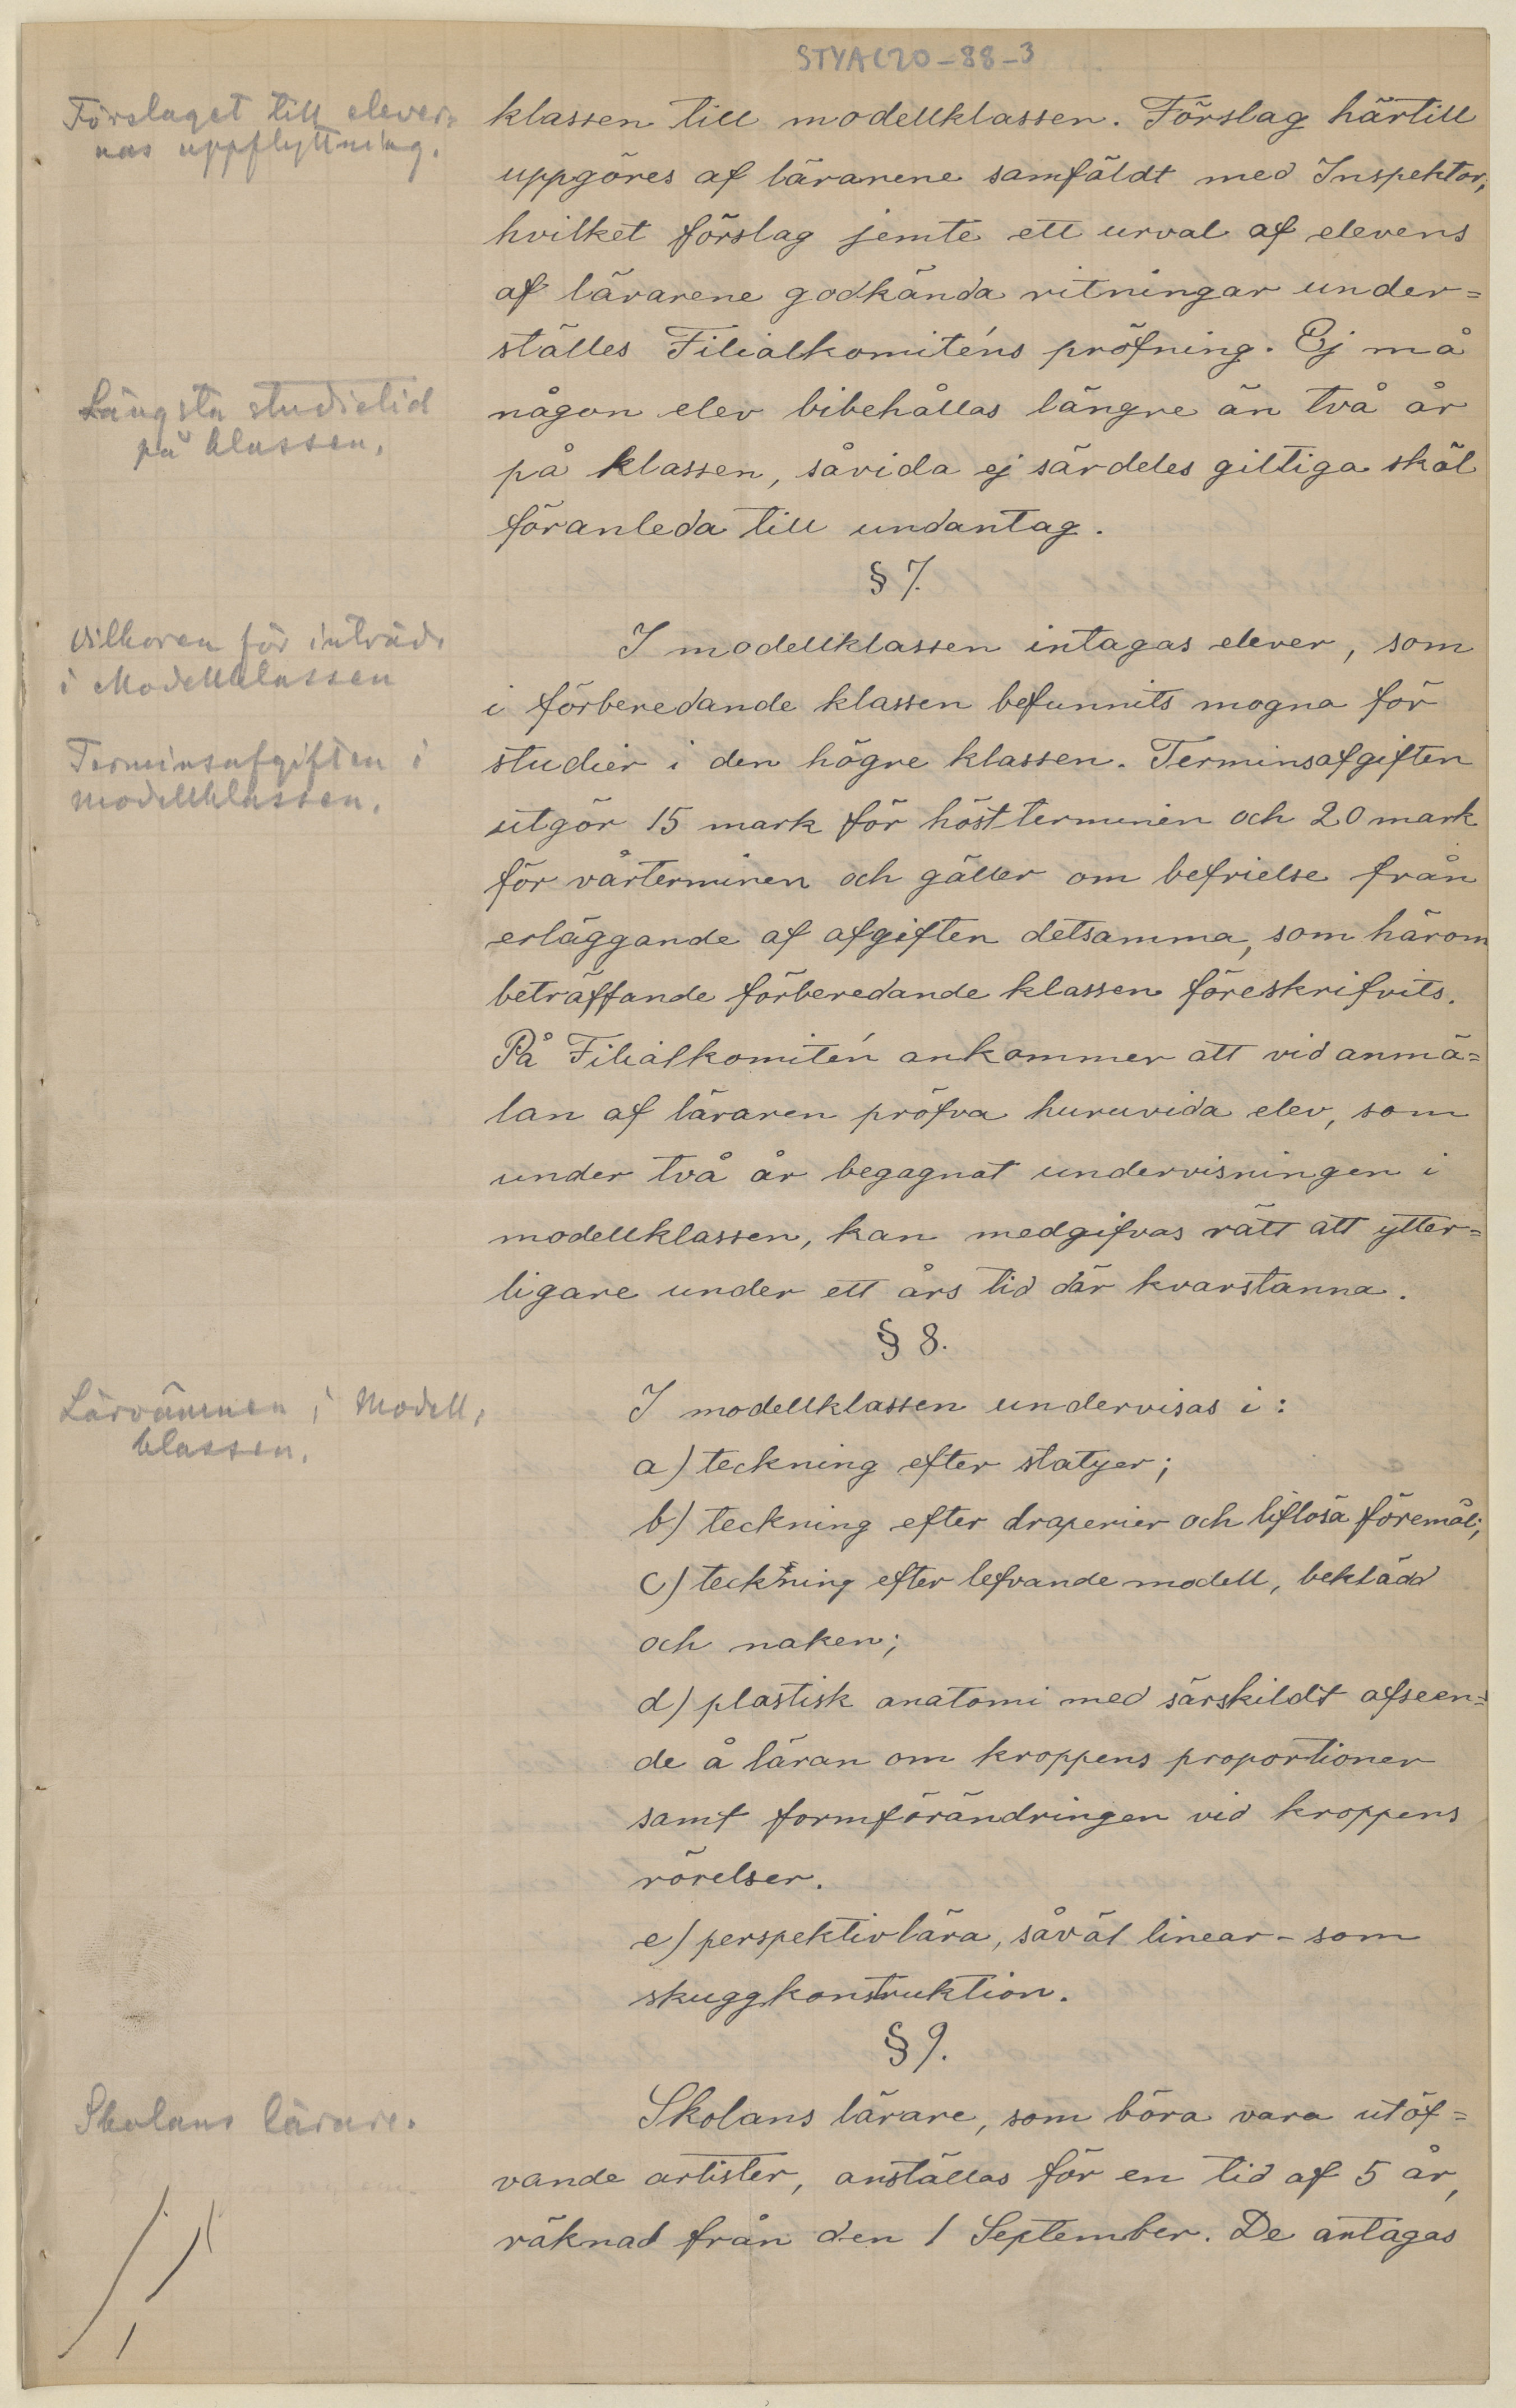 STYA C20-88-3
Förslaget till elever-
nas uppflyttning.
klassen till modellklassen. Förslag härtill
uppgöres af lärarene samfäldt med Inspektor,
hvilket förslag jemte ett urval af elevens
af lärarene godkända ritningar under=
ställes Filialkomiténs pröfning. Ej må
Längsta studietid
på klassen.
någon elev bibehållas längre än två år
på klassen, såvida ej särdeles giltiga skäl
föranleda till undantag.
§ 7.
Vilkoren för inträde
i Modellklassen
I modellklassen intagas elever, som
i förberedande klassen befunnits mogna för
Terminsafgiften i
modellklassen.
studier i den högre klassen. Terminsafgiften
utgör 15 mark för höstterminen och 20 mark
för vårterminen och gäller om befrielse från
erläggande af afgiften detsamma, som härom
beträffande förberedande klassen föreskrifvits.
På Filialkomitén ankommer att vid anmä=
lan af läraren pröfva huruvida elev, som
under två år begagnat undervisningen i
modellklassen, kan medgifvas rätt att ytter=
ligare under ett års tid där kvarstanna.
§ 8.
Läroämnen i Modell-
klassen.
I modellklassen undervisas i:
a) teckning efter statyer;
b) teckning efter draperier och liflösa föremål;
c) teckning efter lefvande modell, beklädd
och naken;
d) plastisk anatomi med särskildt afseen=
de å läran om kroppens proportioner
samt formförändringen vid kroppens
rörelser.
e) perspektivlära, såväl linear- som
skuggkonstruktion.
§ 9.
Skolans lärare.
Skolans lärare, som böra vara utöf=
vande artister, anställas för en tid af 5 år,
räknad från den 1 September. De antagas